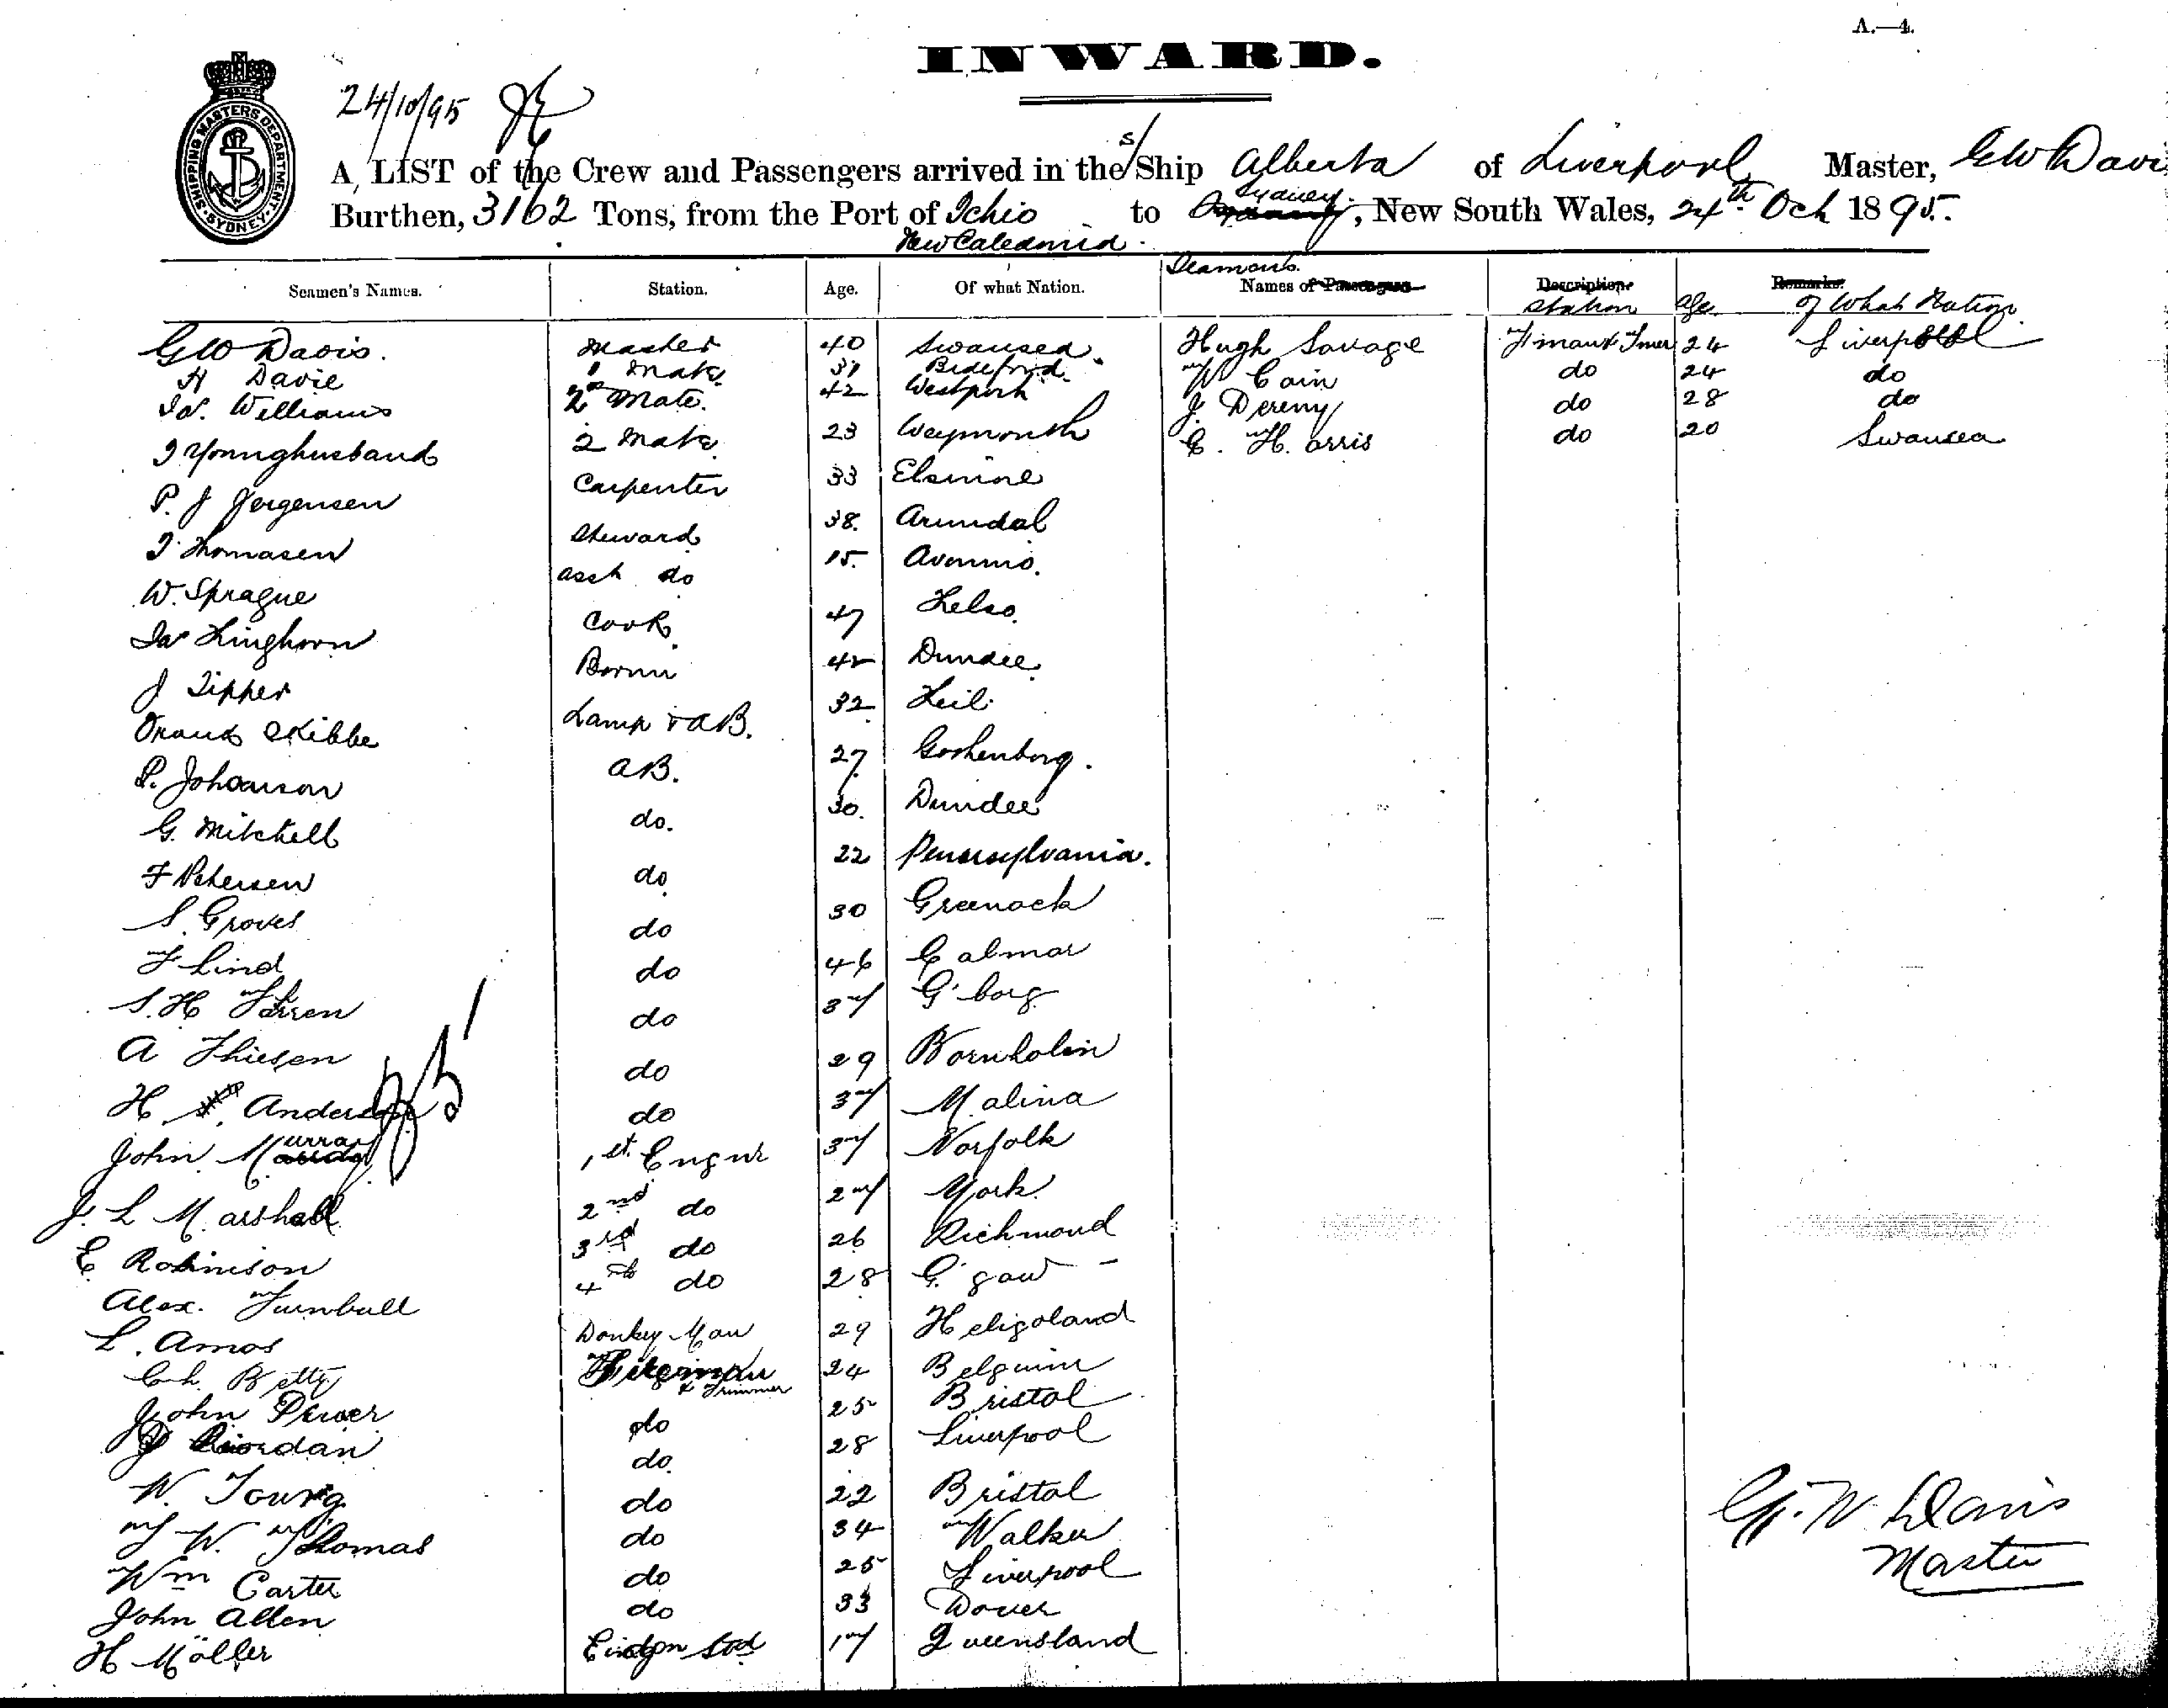 A.—4.
INWARD.
24/10/95
SHIPPING MASTERS DEPARTMENT. SYDNEY.
A LIST of the Crew and Passengers arrived in the S/Ship Alberta of Liverpool, Master, G W Davi
Burthen, 3162 Tons, from the Port of Tchio to Sydney, New South Wales, 24th Oct 1895.
New Caledonia.
Seamen's Names. Station. Age. Of what Nation. Seamen's Names of Passengers Description Station Age Remarks. of What Nation
G W Davis. Master 40 Swansea. Hugh Savage F'man & T'mer 24 Liverpool
H Davie 1 Mate 31 Bideford. W Cain do 24 do
Js. Williams 2nd Mate. 42 Westport J. Dereny do 28 do
J Younghusband 2 Mate 23 Weymouth C. Harris do 20 Swansea
P. J Jergensen Carpenter 33 Elsinore
J Thomasen Steward 38. Arundal
W. Sprague asst do 15. Avonmo.
Jas Kinghorn Cook 47 Kelso.
J Tipper Bosun 42 Dundee.
Skibbe Lamp & AB. 32 Keil.
P. Johanson AB. 27 Gothenborg.
G. Mitchell do. 30. Dundee
F Petersen do 22 Pennsylvania.
S. Groves do 30 Greenock
F Lind do 46 Calmar
S. H do 37 G'borg
A Thiesen do 29 Bornholm
H Anderson do 37 Malina
John Murray 1st Engnr 37 Norfolk
J. L Marshall 2nd do 27 York.
E Robinison 3rd do 26 Richmond
Alex. Turnbull 4th do 28 G'gow
L. Amos Donkey Man 29 Heligoland
Ch. Betty Fireman & Trimmer 24 Belguim
John Power do 25 Bristol
J Riordan do. 28 Liverpool
W. Young do 22 Bristol
T W. Thomas do 34 Walker
Wm Carter do 25 Liverpool
John Allen do 33 Dover
H Möller Std 17 Queensland
G. W. Davis
Master